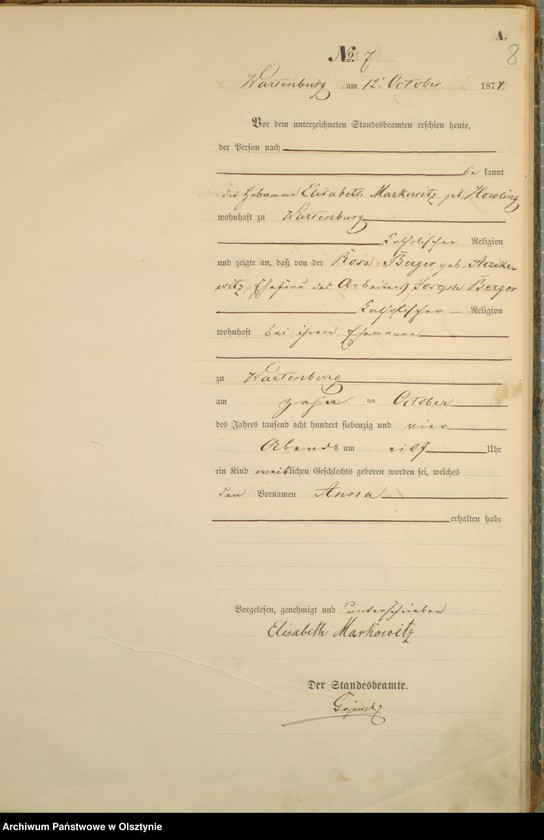 A.
8
No. 7
Wartenburg am 12t October 1874.
Vor dem unterzeichneten Standesbeamten erschien heute,
der Person nach
be kannt
die Hebamme Elisabeth Markowitz geb. Howling
wohnhaft zu Wartenburg
Katholischer Religion
und zeigte an, daß von der Rosa Berger geb.
witz Ehefrau des Arbeiters Joseph Berger
Katholischer Religion
wohnhaft bei ihrem Ehemanne
zu Wartenburg
am zehn ten October
des Jahres tausend acht hundert siebenzig und vier
Abends um eilf Uhr
ein Kind weiblichen Geschlechts geboren worden sei, welches
den Vornamen Anna
erhalten habe
Vorgelesen, genehmigt und unterschrieben
Elisabeth Markowitz
Der Standesbeamte.
Archiwum Państwowe w Olsztynie